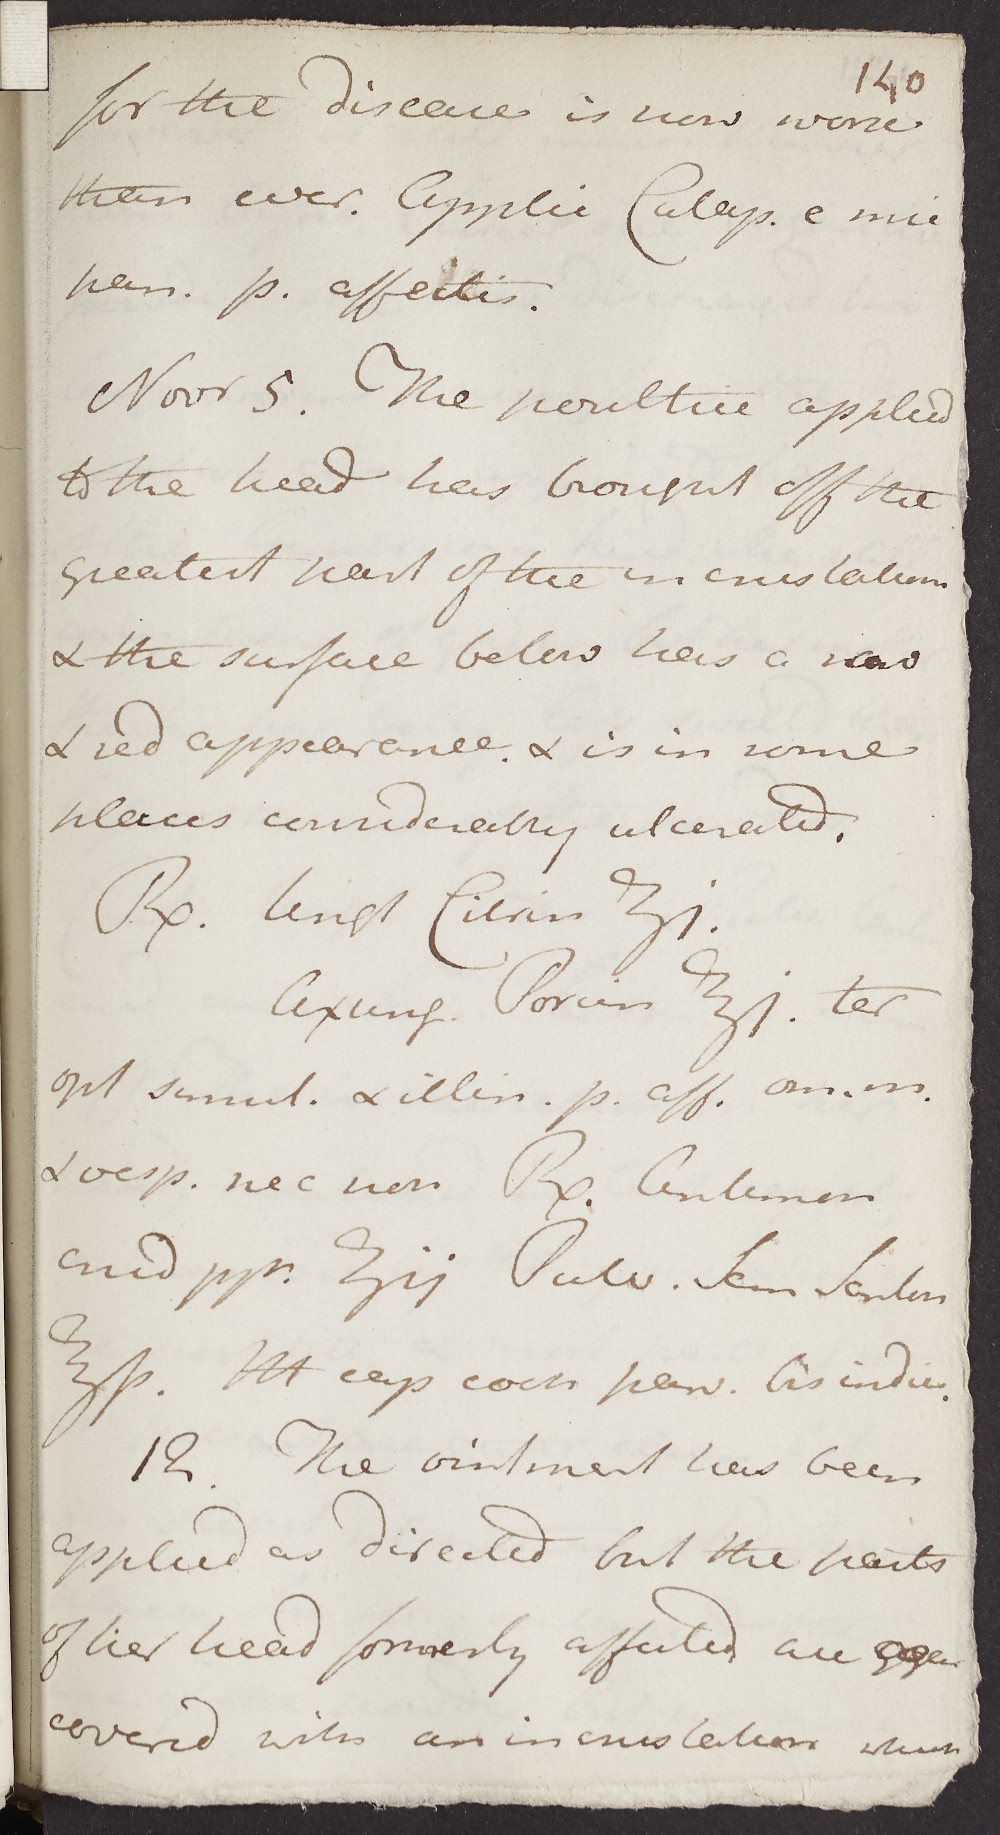 140
for the disease is now worse
than ever. Applic Catap. e mic
pan. p. affectis.
Novr 5. The poultice applied
to the head has brought off the
greatest part of the incrustation
& the surface below has a raw
& red appearance. & is in some
places considerably ulcerated.
Rx. Ungt Citrin ℥j.
Axung. Porcin ℥j. ter
opt simul. & illin. p. aff. om. m.
& vesp. nec non Rx. Antimon
crud ppt. ℥ij Pulv. Sem Santon
℥ß. M cap coch parv. bis indies.
12. The ointment has been
applied as directed but the parts
of her head formerly affected are again
covered with an incrustation which